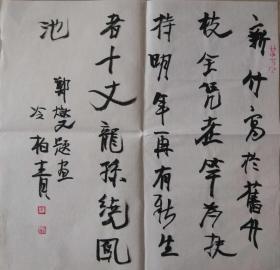 新竹高於舊竹
枝全凭老竿为扶
持明年再有新生
者十丈龍孫绕鳳
池
郑燮题画
冷柏青